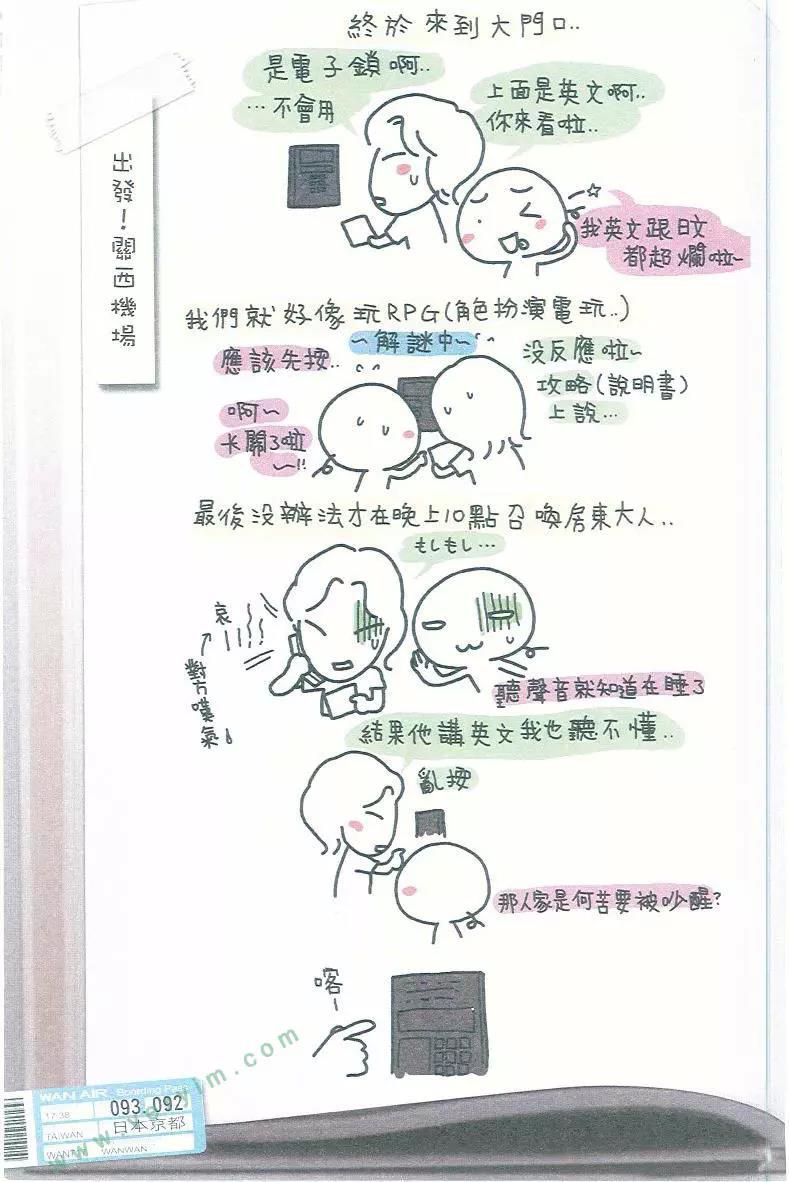 終於來到大門口..
是電子鎖啊..
…不會用
上面是英文啊..
你來看啦..
我英文跟日文
都超爛啦~
出發！關西機場
我們就好像玩RPG(角色扮演電玩..)
~解謎中~
應該先按..
沒反應啦~
攻略(說明書)
上說…
啊~
卡關了啦
~!!
最後沒辦法才在晚上10點召喚房東大人..
もしもし…
哀
對方嘆氣
聽聲音就知道在睡了
結果他講英文我也聽不懂..
亂按
那人家是何苦要被吵醒?
喀ー
WAN AIR Boarding Pass
17:38
093 092
TAIWAN
日本京都
WANWAN